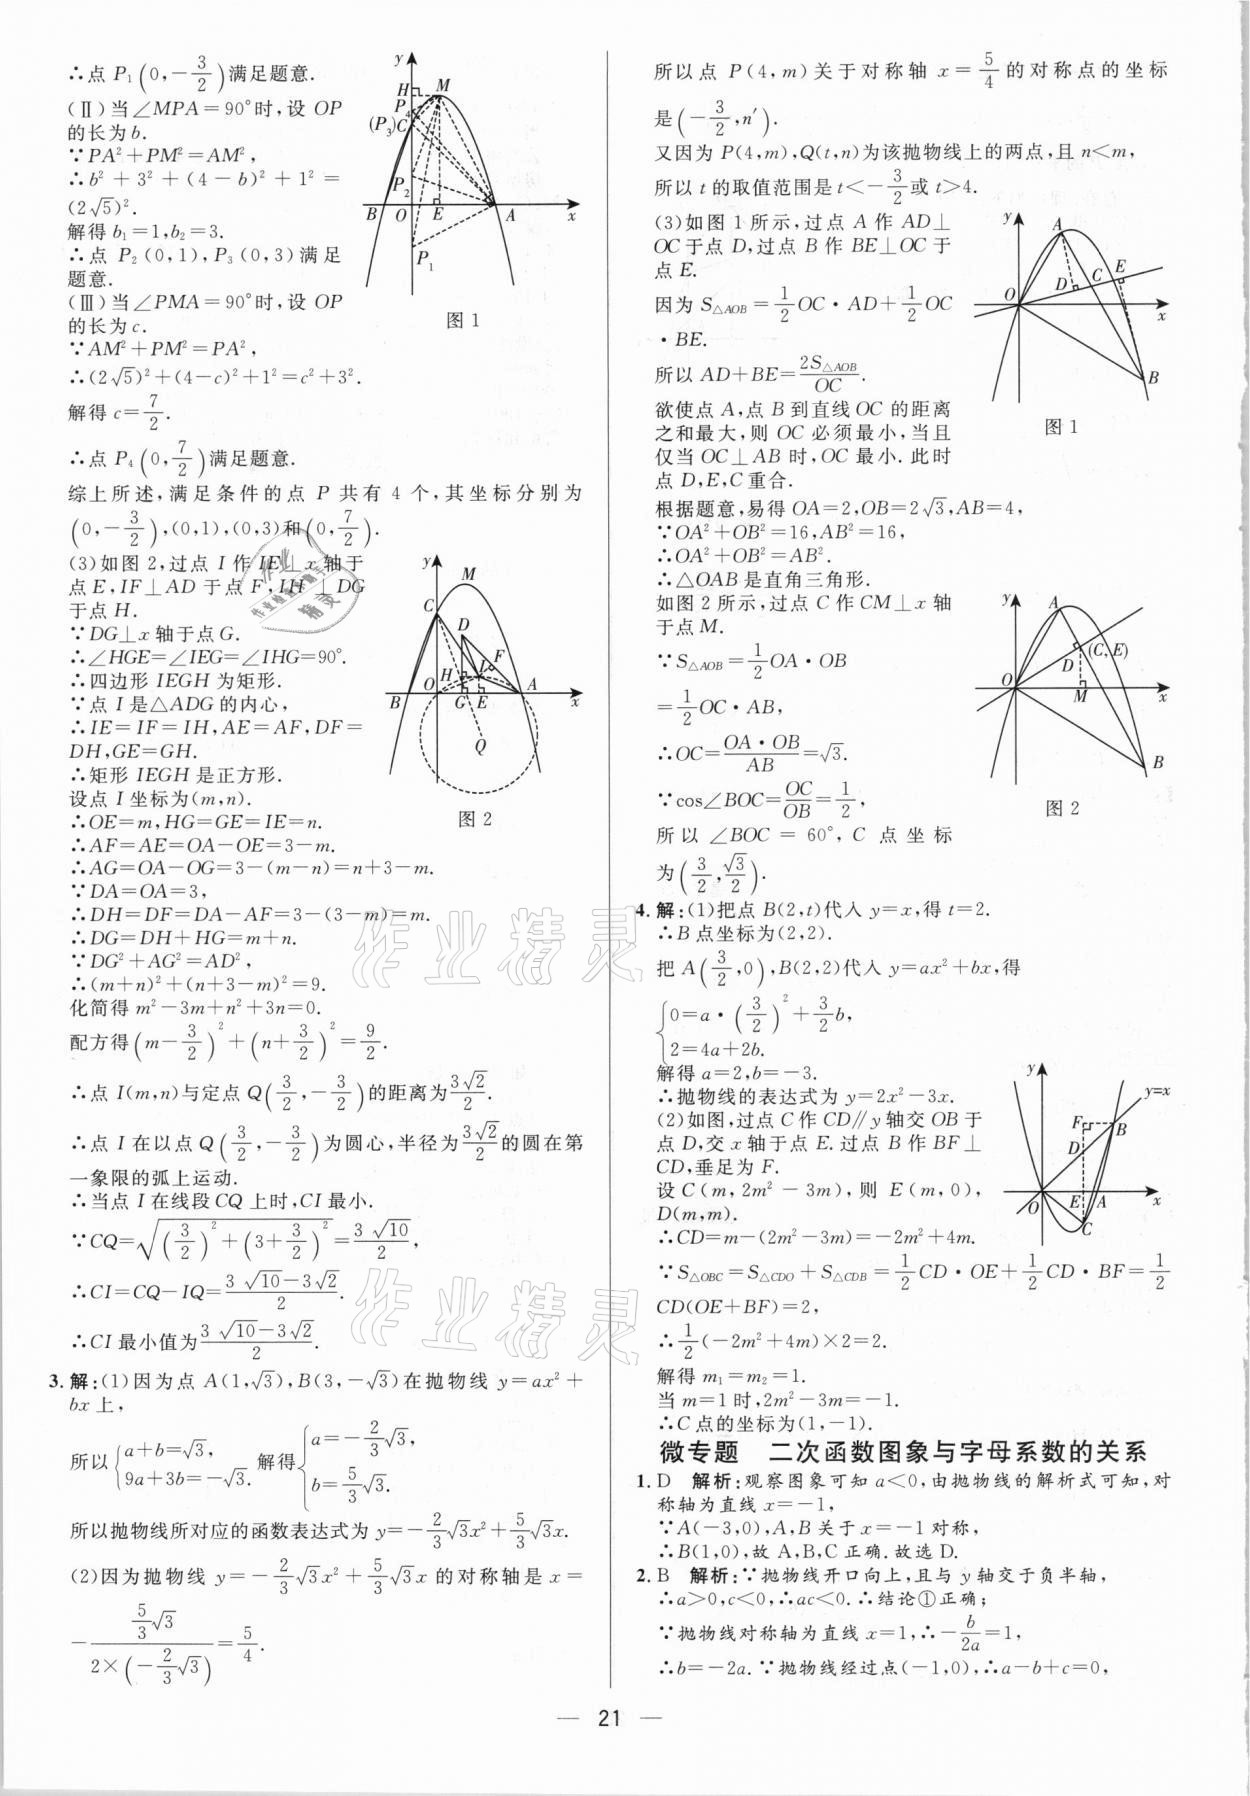 ∴点 P₁(0,-3/2)满足题意.
(Ⅱ)当∠MPA=90°时,设 OP
的长为b.
∵PA²+PM²=AM²,
∴b²+3²+(4-b)²+1²=
(2√5)².
解得b₁=1,b₂=3.
∴点 P₂(0,1),P₃(0,3)满足
题意.
(Ⅲ)当∠PMA=90°时,设 OP
的长为c.
∵AM²+PM²=PA²,
∴(2√5)²+(4-c)²+1²=c²+3².
解得c=7/2.
∴点 P₄(0,7/2)满足题意.
y
H
M
P₄
(P₃)C
P₂
B
O
E
A
x
P₁
图 1
综上所述,满足条件的点 P 共有 4 个,其坐标分别为
(0,-3/2),(0,1),(0,3)和(0,7/2).
(3)如图 2,过点 I 作 IE⊥x 轴于
点E,IF⊥AD 于点F,IH⊥DG
于点 H.
∵DG⊥x 轴于点G.
∴∠HGE=∠IEG=∠IHG=90°.
∴四边形 IEGH 为矩形.
∵点 I 是△ADG的内心,
∴IE=IF=IH,AE=AF,DF=
DH,GE=GH.
∴矩形 IEGH 是正方形.
设点 I 坐标为(m,n).
∴OE=m,HG=GE=IE=n.
∴AF=AE=OA-OE=3-m.
∴AG=OA-OG=3-(m-n)=n+3-m.
∵DA=OA=3,
∴DH=DF=DA-AF=3-(3-m)=m.
∴DG=DH+HG=m+n.
∵DG²+AG²=AD²,
∴(m+n)²+(n+3-m)²=9.
化简得 m²-3m+n²+3n=0.
y
M
C
D
F
H
I
B
O
G
E
A
x
Q
图 2
配方得(m-3/2)²+(n+3/2)²=9/2.
∴点 I(m,n)与定点 Q(3/2,-3/2)的距离为3√2/2.
∴点 I 在以点 Q(3/2,-3/2)为圆心,半径为3√2/2的圆在第
一象限的弧上运动.
∴当点 I 在线段CQ 上时,CI 最小.
∵CQ=√((3/2)²+(3+3/2)²)=3√10/2,
∴CI=CQ-IQ=(3√10-3√2)/2.
∴CI 最小值为(3√10-3√2)/2.
3. 解:(1)因为点 A(1,√3),B(3,-√3)在抛物线 y=ax²+
bx上,
所以{a+b=√3, 9a+3b=-√3. 解得{a=-2/3√3, b=5/3√3.
所以抛物线所对应的函数表达式为 y=-2/3√3x²+5/3√3x.
(2)因为抛物线 y=-2/3√3x²+5/3√3x 的对称轴是 x=
-(5/3√3)/(2×(-2/3√3))=5/4.
所以点 P(4,m)关于对称轴 x=5/4的对称点的坐标
是(-3/2,n′).
又因为 P(4,m),Q(t,n)为该抛物线上的两点,且 n<m,
所以 t 的取值范围是t<-3/2或t>4.
(3)如图 1 所示,过点 A 作 AD⊥
OC于点 D,过点 B 作BE⊥OC于
点 E.
因为 S△AOB=1/2OC·AD+1/2OC
·BE.
所以 AD+BE=2S△AOB/OC.
欲使点 A,点 B 到直线 OC 的距离
之和最大,则 OC 必须最小,当且
仅当OC⊥AB 时,OC 最小. 此时
点 D,E,C 重合.
y
A
D
C
E
O
x
B
图 1
根据题意,易得 OA=2,OB=2√3,AB=4,
∵OA²+OB²=16,AB²=16,
∴OA²+OB²=AB².
∴△OAB是直角三角形.
如图 2 所示,过点 C 作CM⊥x 轴
于点 M.
∵S△AOB=1/2OA·OB
=1/2OC·AB,
∴OC=OA·OB/AB=√3.
∵cos∠BOC=OC/OB=1/2,
所以 ∠BOC = 60°,C 点坐标
为(3/2,√3/2).
y
A
D
(C,E)
O
M
x
B
图 2
4. 解:(1)把点 B(2,t)代入 y=x,得 t=2.
∴B 点坐标为(2,2).
把 A(3/2,0),B(2,2)代入 y=ax²+bx,得
{0=a·(3/2)²+3/2b,
2=4a+2b.
解得 a=2,b=-3.
∴抛物线的表达式为 y=2x²-3x.
(2)如图,过点 C 作 CD∥y 轴交 OB 于
点 D,交 x 轴于点 E. 过点 B 作 BF⊥
CD,垂足为 F.
设 C(m,2m²-3m),则 E(m,0),
D(m,m).
∴CD=m-(2m²-3m)=-2m²+4m.
y
y=x
F
B
D
O
E
A
x
C
∵S△OBC=S△CDO+S△CDB=1/2CD·OE+1/2CD·BF=1/2
CD(OE+BF)=2,
∴1/2(-2m²+4m)×2=2.
解得 m₁=m₂=1.
当 m=1时,2m²-3m=-1.
∴C点的坐标为(1,-1).
微专题 二次函数图象与字母系数的关系
1. D 解析:观察图象可知 a<0,由抛物线的解析式可知,对
称轴为直线 x=-1,
∵A(-3,0),A,B关于 x=-1 对称,
∴B(1,0),故 A,B,C 正确. 故选 D.
2. B 解析:∵抛物线开口向上,且与 y 轴交于负半轴,
∴a>0,c<0,∴ac<0. ∴结论①正确;
∵抛物线对称轴为直线 x=1,∴-b/2a=1,
∴b=-2a. ∵抛物线经过点(-1,0),∴a-b+c=0,
— 21 —
作业精灵
作业精灵